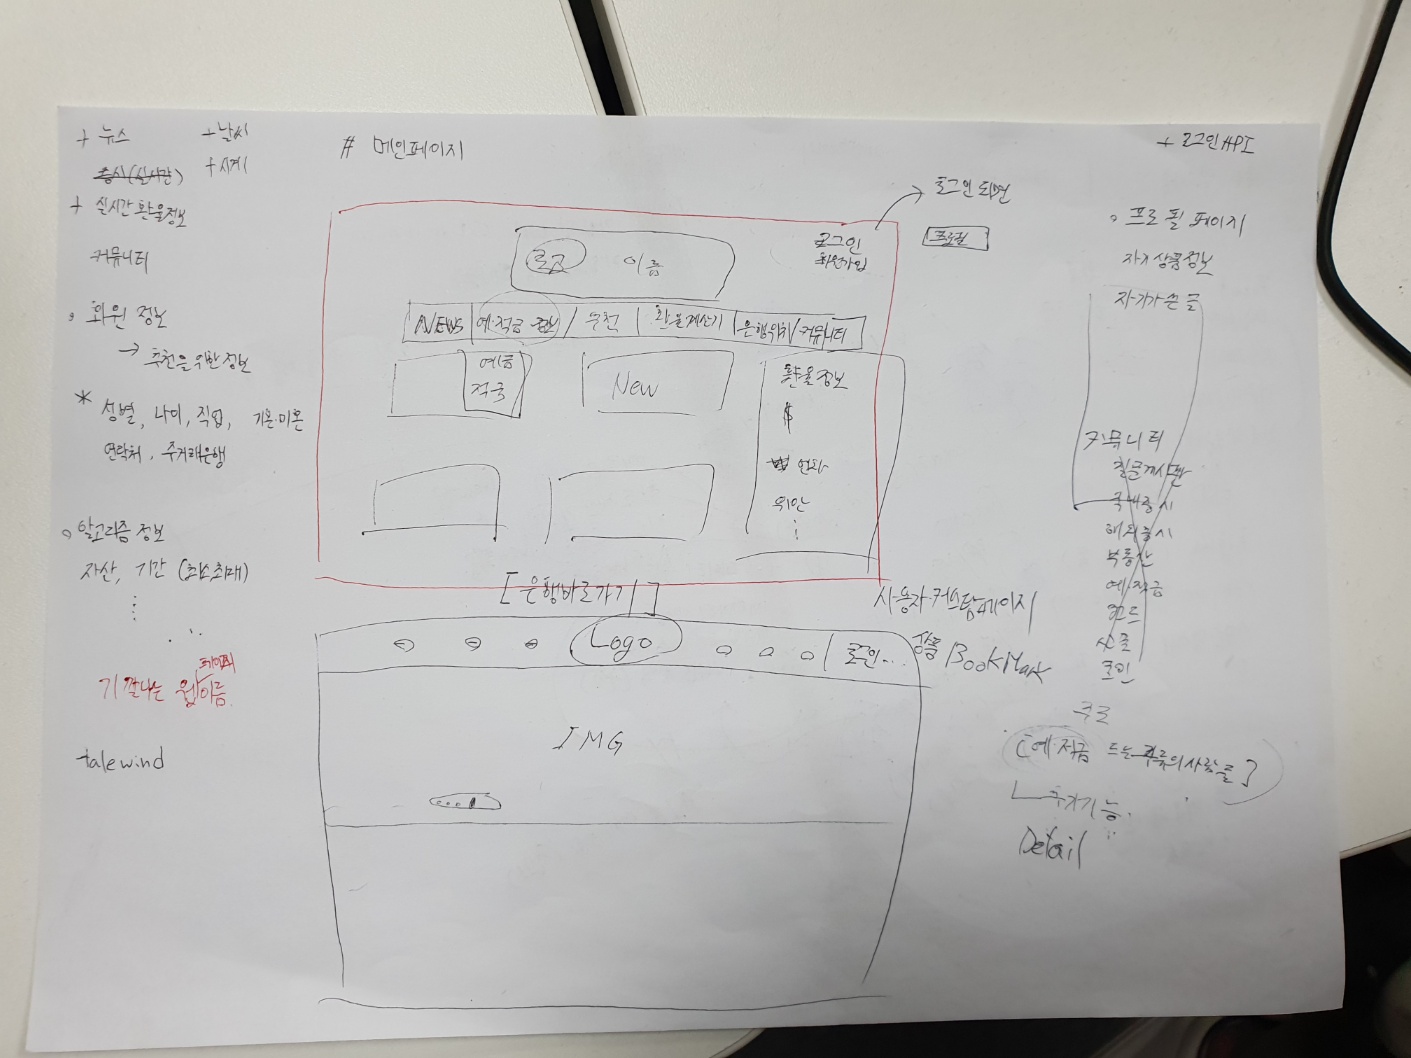 + 뉴스
+ 날씨
증시(실시간)
+ 시계
+ 실시간 환율정보
커뮤니티
회원 정보
→ 추천을 위한 정보
* 성별, 나이, 직업, 기혼·미혼
연락처, 주거래은행
알고리즘 정보
자산, 기간 (최소최대)
기깔나는 웹 이름
페이지
talewind
# 메인페이지
로그인 화면
프로필
로고 이름
로그인
회원가입
NEWS 예·적금 정보 / 추천 | 환율계산기 | 은행위치 / 커뮤니티
예금
적금
New
환율정보
$
₩ 엔화
위안
[은행바로가기]
사용자·커스텀페이지
Logo
로그인...
상품 BookMark
IMG
+ 로그인 API
프로필 페이지
자기상품정보
자기가 쓴 글
커뮤니티
질문게시판
국내증시
해외증시
부동산
예·적금
카드
코인
[예·적금 드는 사람들]
추가기능
Detail